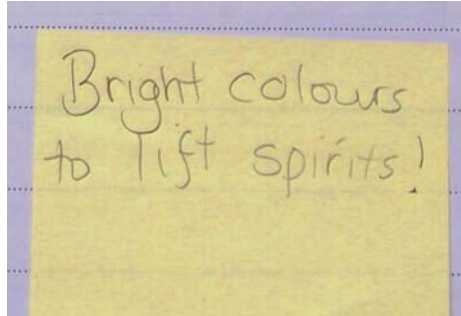 Bright colours
to lift spirits!